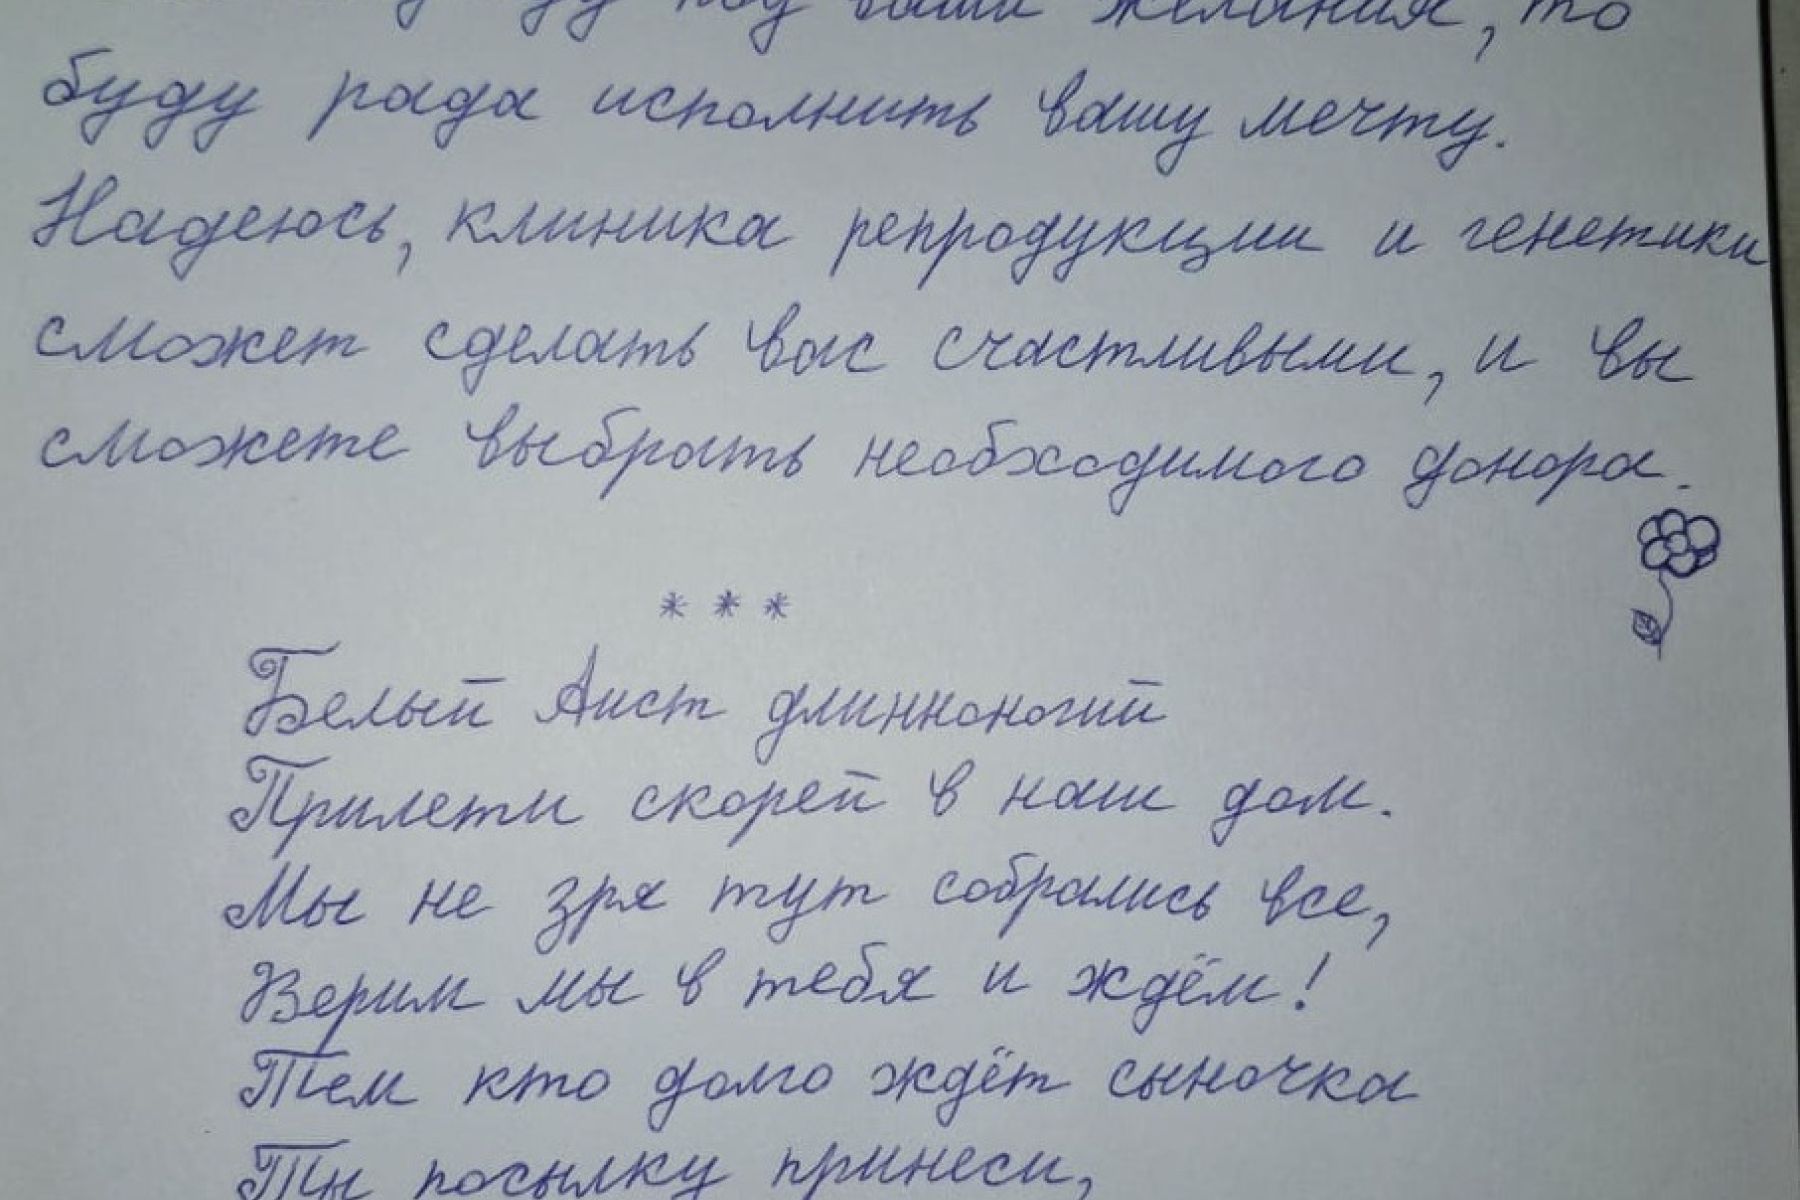 под ваши желания, то
буду рада исполнить вашу мечту.
Надеюсь, клиника репродукции и генетики
сможет сделать вас счастливыми, и вы
сможете выбрать необходимого донора.
* * *
Белый Аист длинноногий
Прилети скорей в наш дом.
Мы не зря тут собрались все,
Верим мы в тебя и ждём!
Тем кто долго ждёт сыночка
Ты посылку принеси,